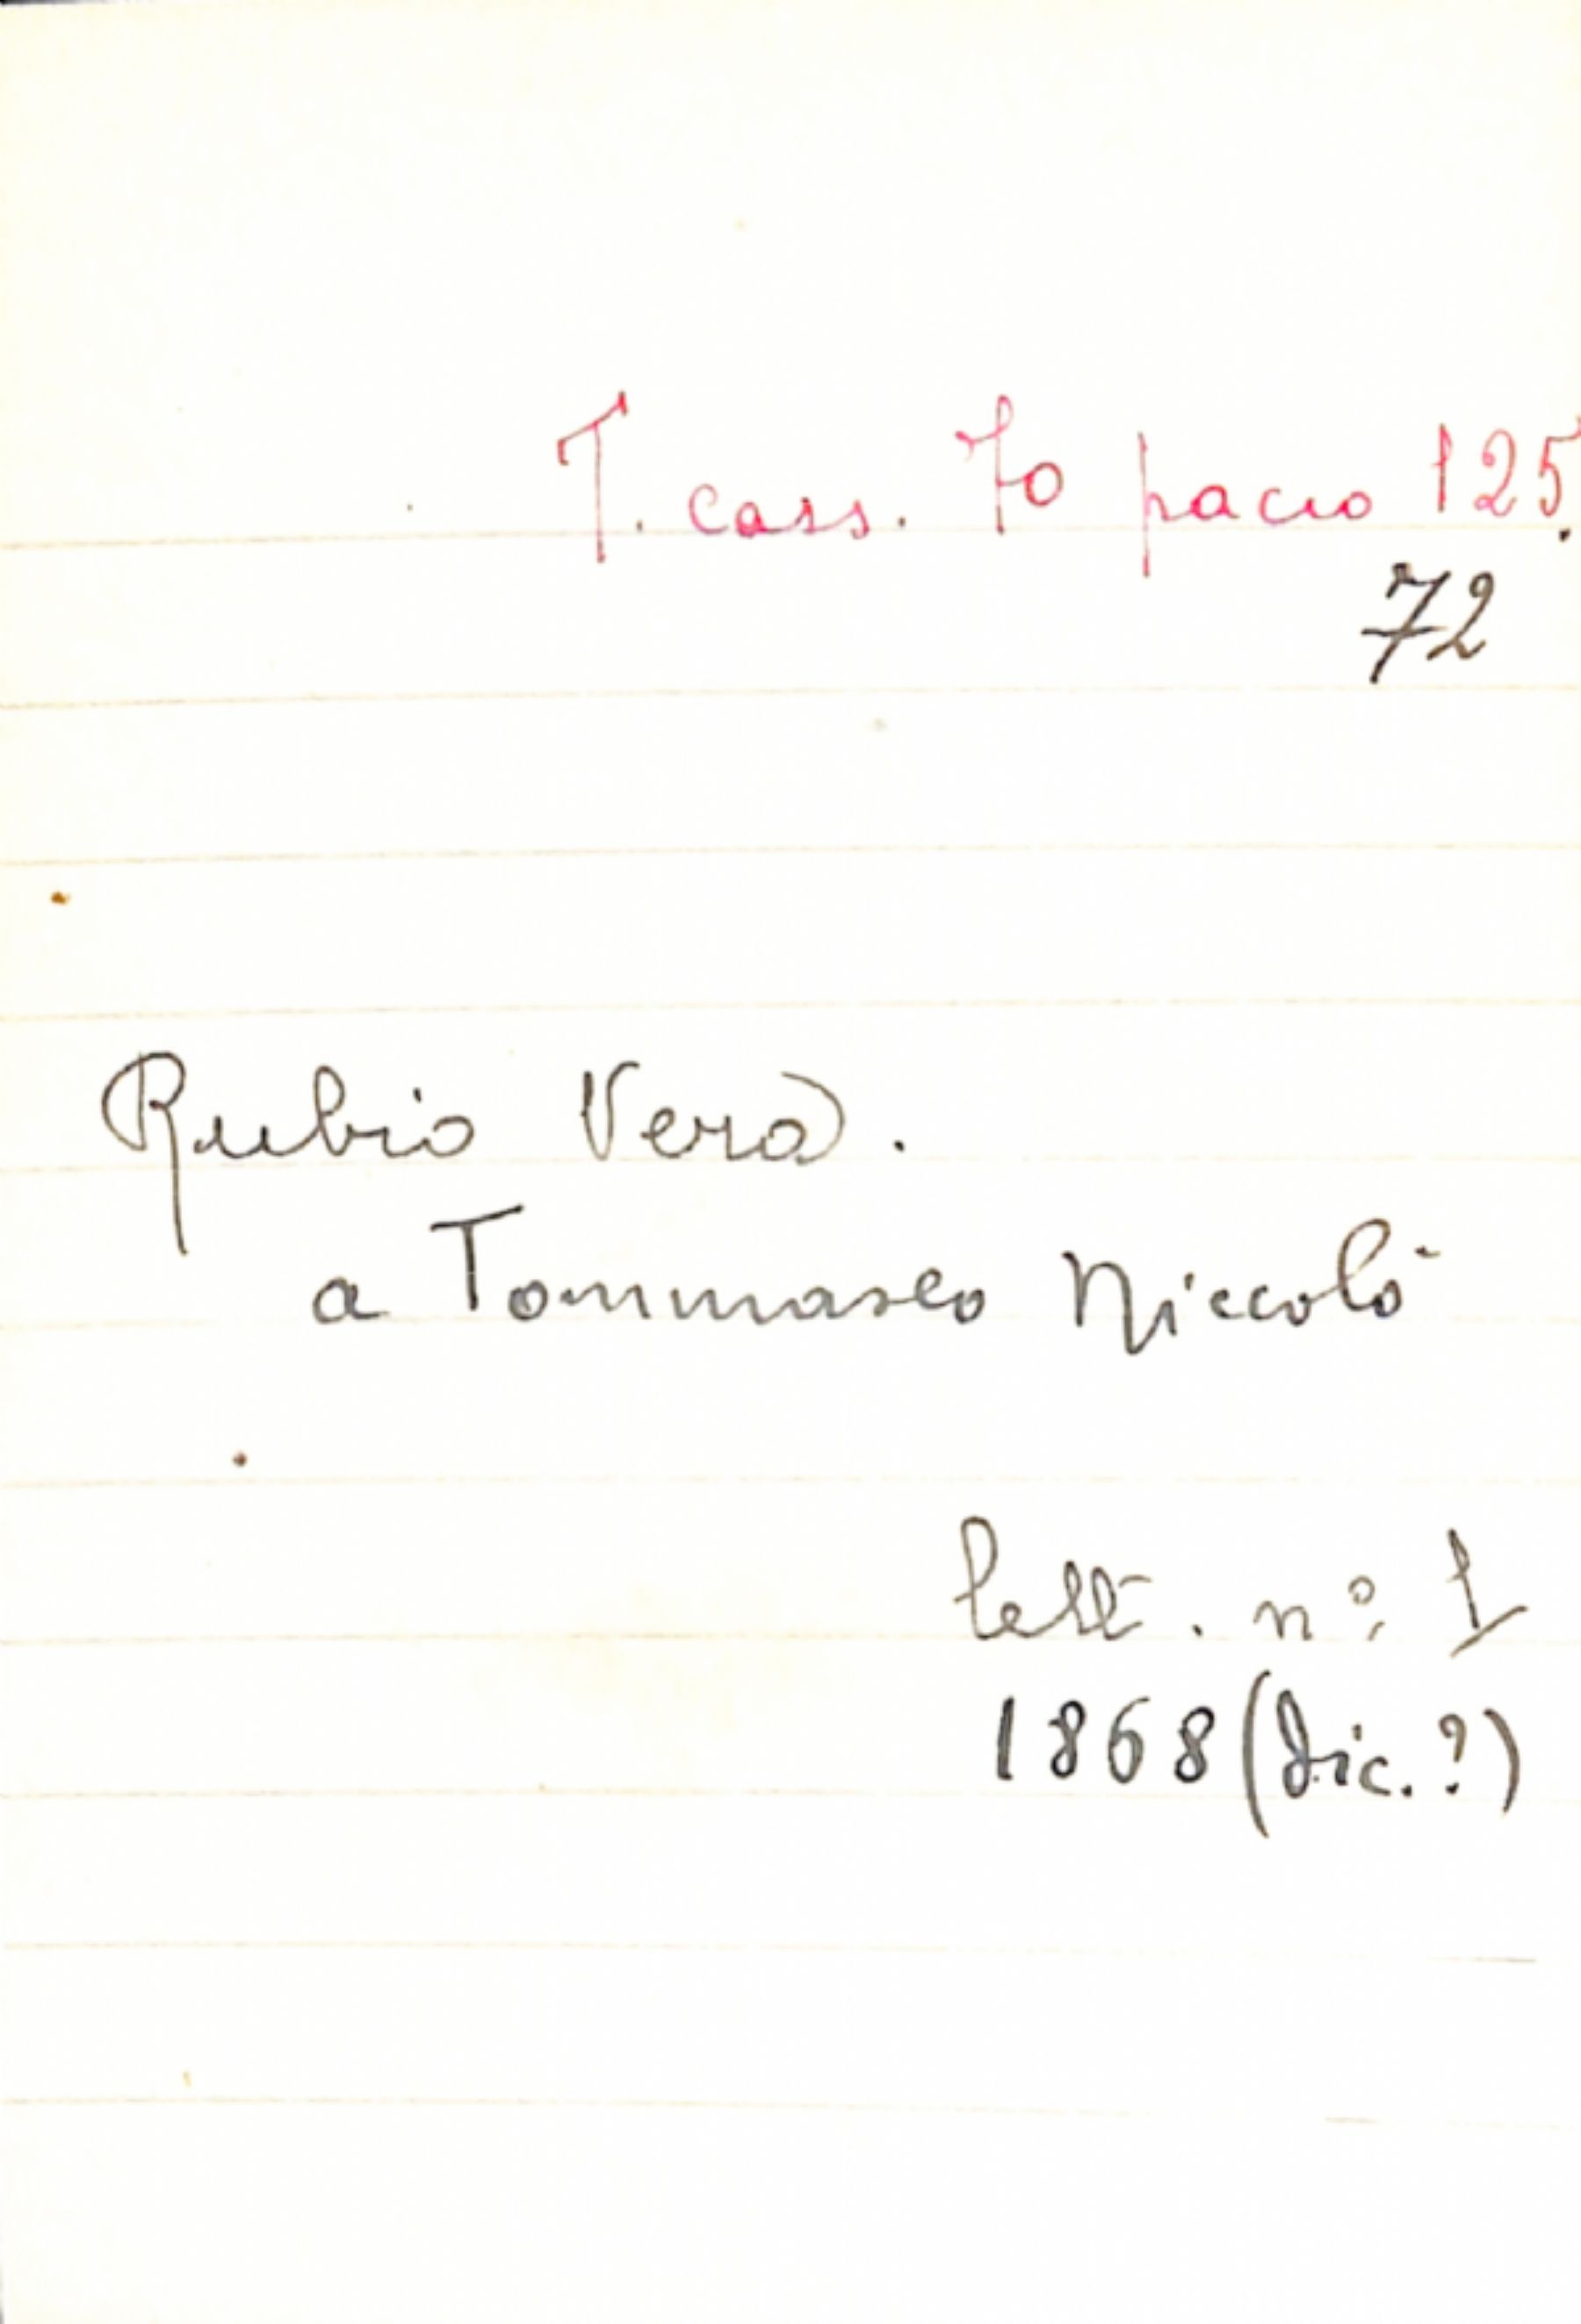 T. cass. 70 pacco 125.
72
Rubio Vera.
a Tommaseo Niccolò
lett. n° 1
1868 (dic. ?)